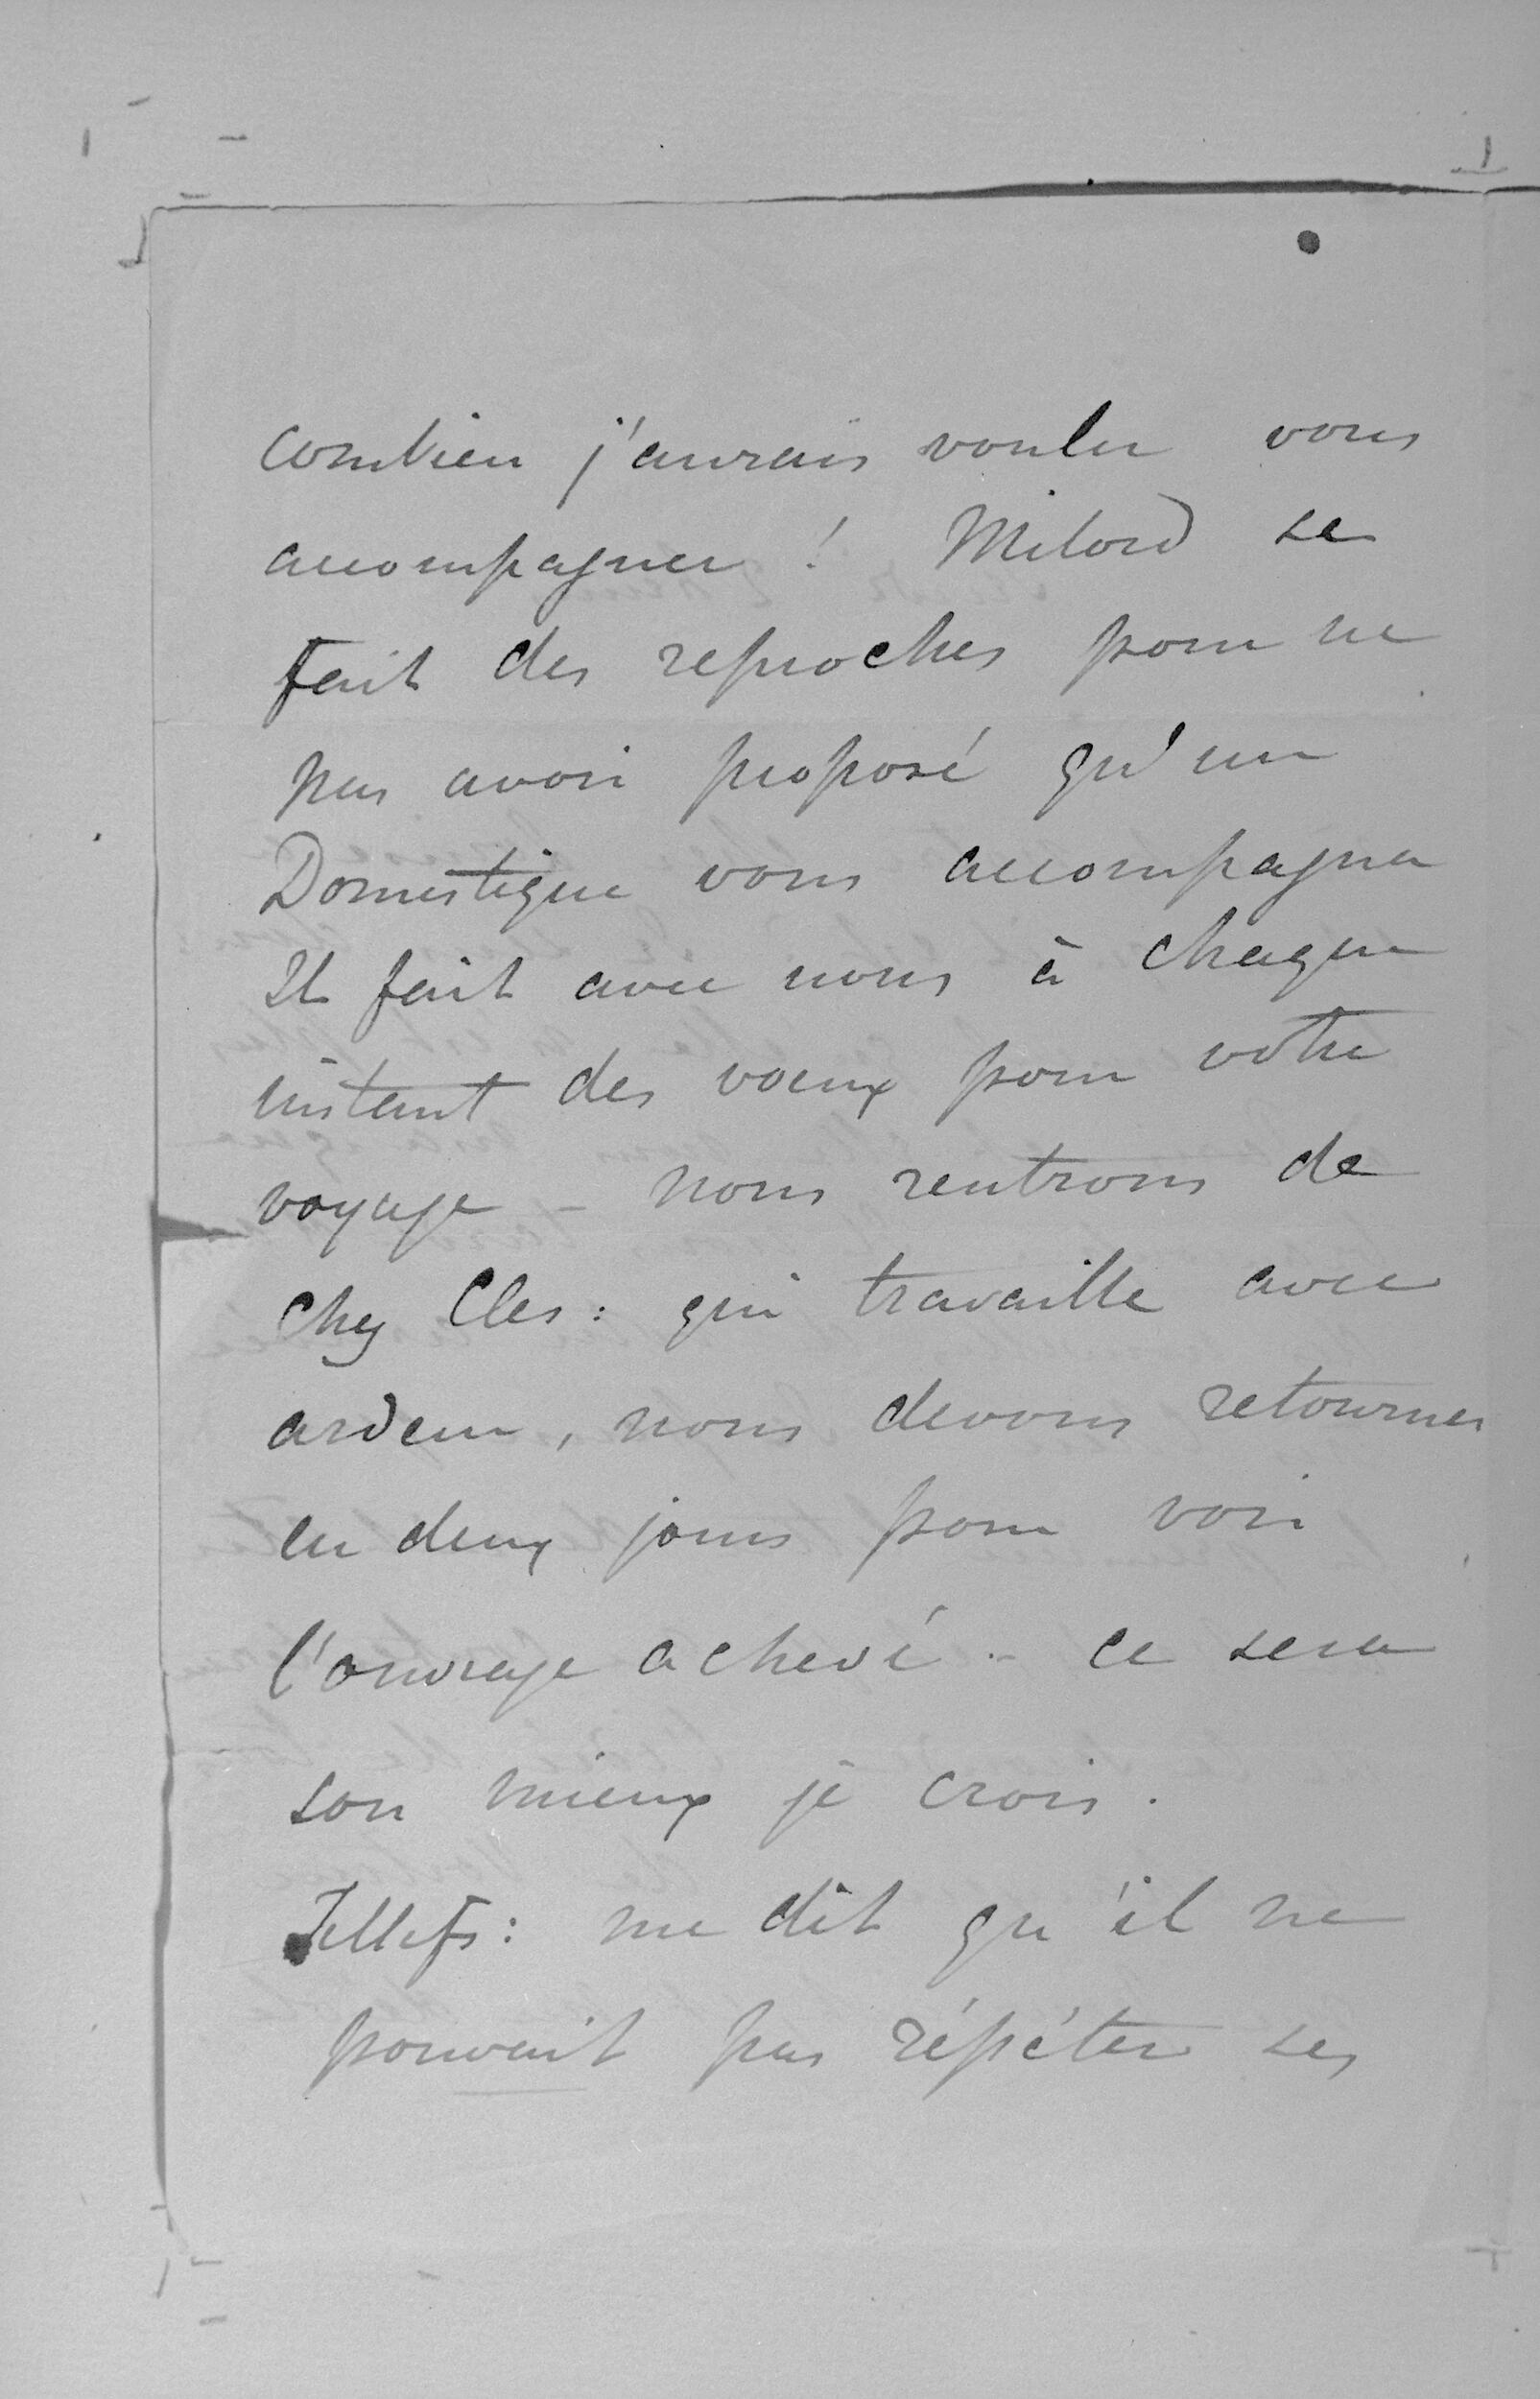 combien j'aurais voulu vous
accompagner ! Milord se
fait des reproches pour ne
pas avoir proposé qu'un
Domestique vous accompagna
Il fait avec nous à chaque
instant des voeux pour votre
voyage - nous rentrons de
chez Cles: qui travaille avec
ardeur, nous devons retourner
en deux jours pour voir
l'ouvrage achevé - ce sera
son mieux je crois.
me dit qu'il ne
pouvait pas répéter ses